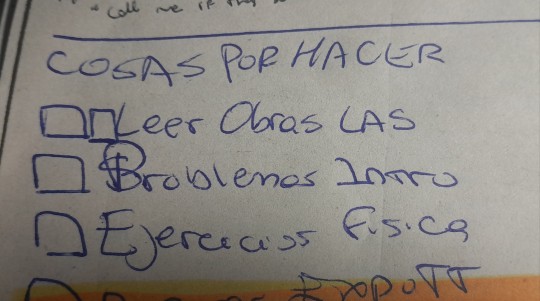 Call me if they
COSAS POR HACER
Leer Obras LAS
Problemas Intro
Ejercicios Física
Expo TT